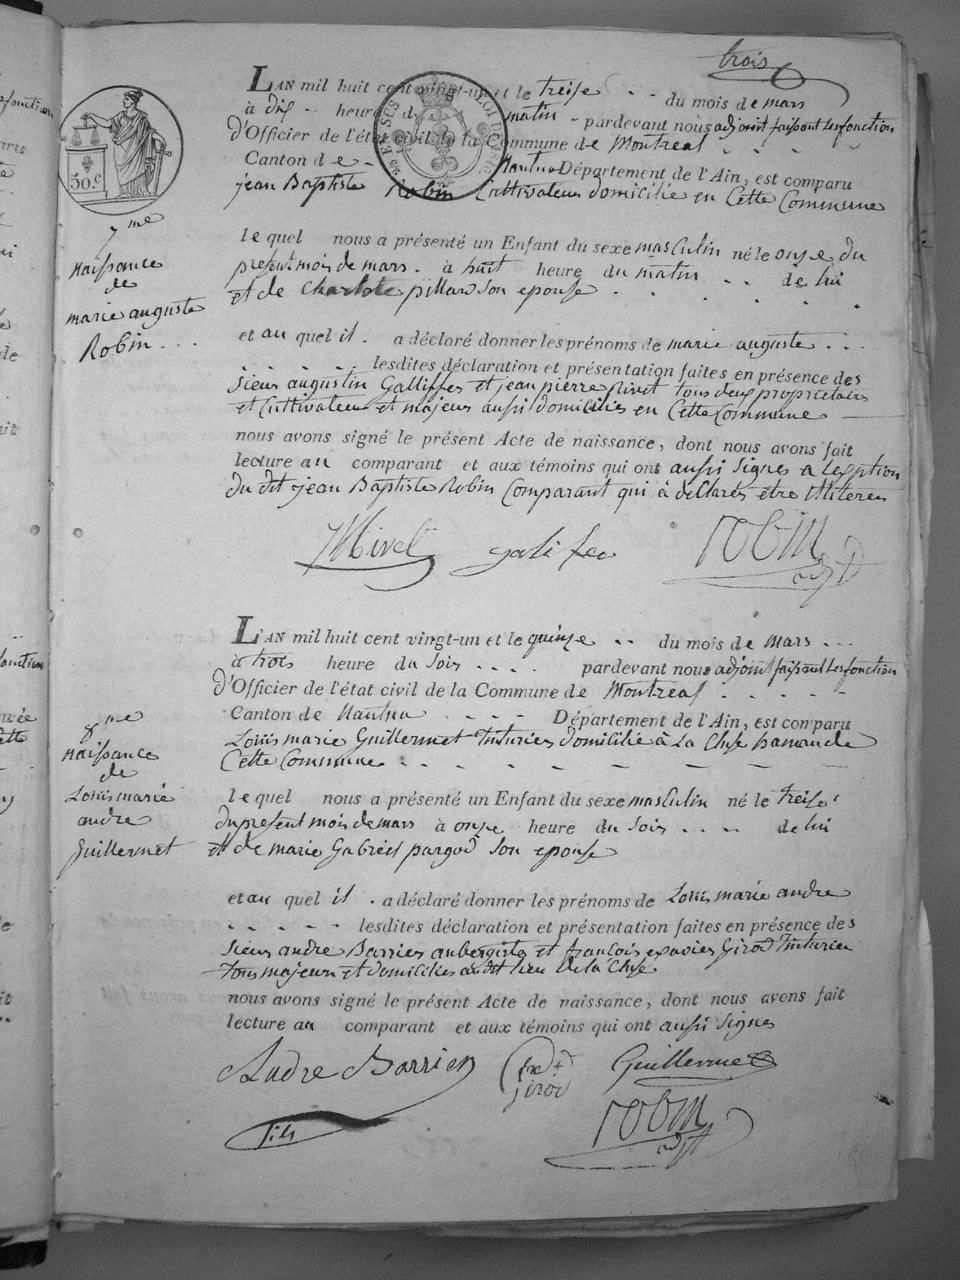 trois
LAN mil huit cent vingt-un et le treize .. du mois de mars
à dix .. heures du matin - pardevant nous adjoint faisant les fonction
d'Officier de l'état civil de la Commune de Montreal . . . .
Canton de - Nantua Département de l'Ain, est comparu
jean Baptiste Robin Cultivateur domicilié en Cette Commune
50 c
7me
Naissance
de
marie auguste
Robin ...
le quel nous a présenté un Enfant du sexe masculin né le onze du
present mois de mars . à huit heure du matin .. de lui
et de Charlote pillard son epouse . . . . . .
et au quel il . a déclaré donner les prénoms de marie auguste ...
. . . . . . lesdites déclaration et présentation faites en présence des
Sieurs augustin Galliffet et jean pierre Nivet tous deux proprietaires
et Cultivateur et majeurs aussi domiciliés en Cette Commune
nous avons signé le présent Acte de naissance, dont nous avons fait
lecture au comparant et aux témoins qui ont aussi signes a lexption
du dit jean Baptiste Robin Comparant qui à déclarés être illiteré
galifea robin adjt
L'AN mil huit cent vingt-un et le quinze .. du mois de mars ...
à trois heure du soir .... pardevant nous adjoint faisant les fonction
d'Officier de l'état civil de la Commune de Montreal . . . . .
Canton de Nantua . . . . Département de l'Ain, est comparu
Louis marie Guillermet Tinturier domicilié à La Cluse hamau de
Cette Commune . . - - - - - -
8me
Naissance
de
Louis marie
andre
Guillermet
le quel nous a présenté un Enfant du sexe masculin né le treize
du present mois de mars à onze heure du soir .... de lui
et de marie Gabriel pargod son epouse
et au quel il . a déclaré donner les prénoms de Louis marie andre
. . . . . lesdites déclaration et présentation faites en présence des
Sieurs andre Barrier aubergiste et francois exavier Girod Tinturier
tous majeurs et domiciliés audit lieu de la Cluse
nous avons signé le présent Acte de naissance, dont nous avons fait
lecture au comparant et aux témoins qui ont aussi signes
Andre Barrier fils girod Guillermet
robin adjt